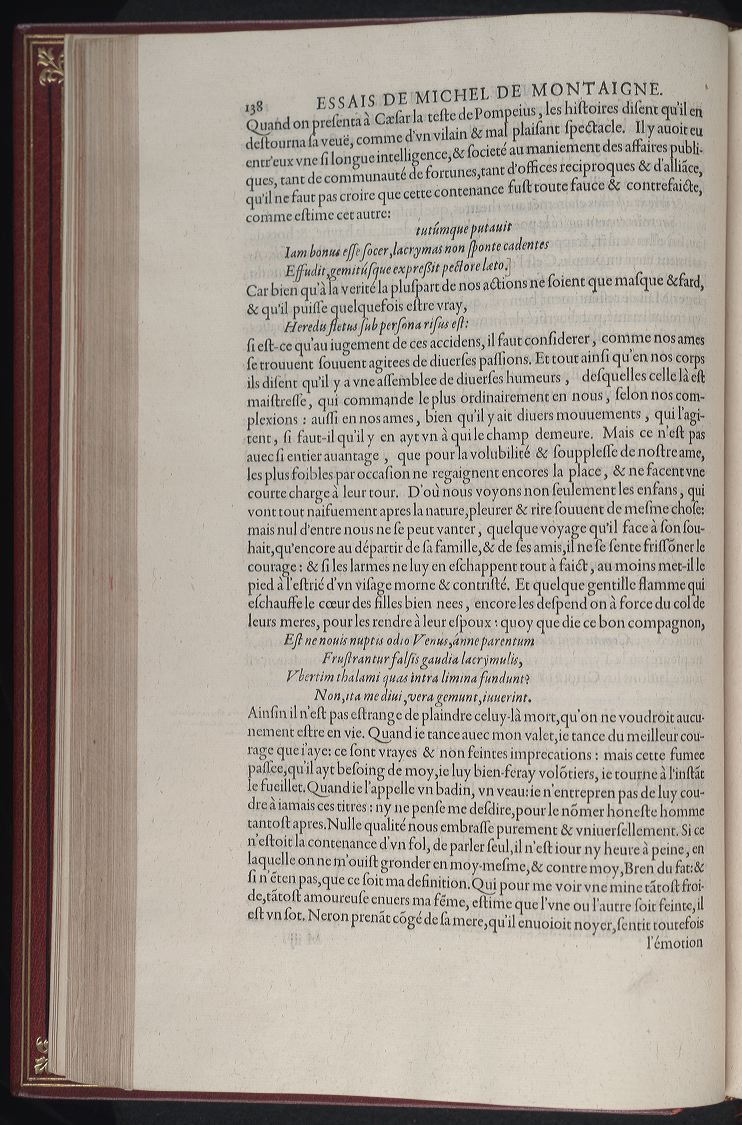 138 ESSAIS DE MICHEL DE MONTAIGNE.
Quand on preſenta à Cæſar la teſte de Pompeius, les hiſtoires diſent qu'il en
deſtourna ſa veuë, comme d'vn vilain & mal plaiſant ſpectacle. Il y auoit eu
entr'eux vne ſi longue intelligence, & ſocieté au maniement des affaires publi-
ques, tant de communauté de fortunes, tant d'offices reciproques & d'alliãce,
qu'il ne faut pas croire que cette contenance fuſt toute fauce & contrefaicte,
comme eſtime cet autre:
tutúmque putauit
Iam bonus eſſe ſocer, lacrymas non ſponte cadentes
Effudit, gemitúſque expreßit pectore læto.
Car bien qu'à la verité la pluſpart de nos actions ne ſoient que maſque & fard,
& qu'il puiſſe quelquefois eſtre vray,
Heredis fletus ſub perſona riſus eſt:
ſi eſt-ce qu'au iugement de ces accidens, il faut conſiderer, comme nos ames
ſe trouuent ſouuent agitees de diuerſes paſſions. Et tout ainſi qu'en nos corps
ils diſent qu'il y a vne aſſemblee de diuerſes humeurs, deſquelles celle là eſt
maiſtreſſe, qui commande le plus ordinairement en nous, ſelon nos com-
plexions: auſſi en nos ames, bien qu'il y ait diuers mouuements, qui l'agi-
tent, ſi faut-il qu'il y en ayt vn à qui le champ demeure. Mais ce n'eſt pas
auec ſi entier auantage, que pour la volubilité & ſoupplesse de noſtre ame,
les plus foibles par occaſion ne regaignent encores la place, & ne facent vne
courte charge à leur tour. D'où nous voyons non ſeulement les enfans, qui
vont tout naifuement apres la nature, pleurer & rire ſouuent de meſme choſe:
mais nul d'entre nous ne ſe peut vanter, quelque voyage qu'il face à ſon ſou-
hait, qu'encore au départir de ſa famille, & de ſes amis, il ne ſe ſente friſſõner le
courage: & ſi les larmes ne luy en eſchappent tout à faict, au moins met-il le
pied à l'eſtrié d'vn viſage morne & contriſté. Et quelque gentille flamme qui
eſchauffe le cœur des filles bien nees, encore les deſpend on à force du col de
leurs meres, pour les rendre à leur eſpoux: quoy que die ce bon compagnon,
Eſt ne nouis nuptis odio Venus, ánne parentum
Fruſtrantur falſis gaudia lacrymulis,
Vbertim thalami quas intra limina fundunt?
Non, ita me diui, vera gemunt, iuuerint.
Ainſin il n'eſt pas eſtrange de plaindre celuy-là mort, qu'on ne voudroit aucu-
nement eſtre en vie. Quand ie tance auec mon valet, ie tance du meilleur cou-
rage que i'aye: ce ſont vrayes & non feintes imprecations: mais cette fumee
paſſee, qu'il ayt beſoing de moy, ie luy bien-feray volõtiers, ie tourne à l'inſtãt
le fueillet. Quand ie l'appelle vn badin, vn veau: ie n'entrepren pas de luy cou-
dre à iamais ces titres: ny ne penſe me deſdire, pour le nõmer honeſte homme
tantoſt apres. Nulle qualité nous embraſſe purement & vniuerſellement. Si ce
n'eſtoit la contenance d'vn fol, de parler ſeul, il n'eſt iour ny heure à peine, en
laquelle on ne m'ouiſt gronder en moy-meſme, & contre moy, Bren du fat: &
ſi n'ẽten pas, que ce ſoit ma definition. Qui pour me voir vne mine tãtoſt froi-
de, tãtoſt amoureuſe enuers ma fẽme, eſtime que l'vne ou l'autre ſoit feinte, il
eſt vn ſot. Neron prenãt cõgé de ſa mere, qu'il enuoioit noyer, ſentit toutefois
l'émotion